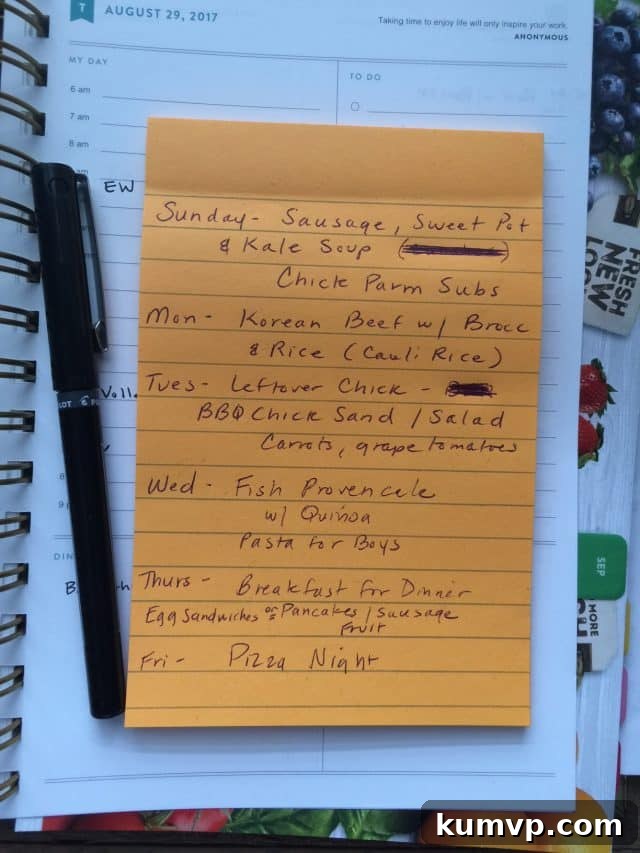 T AUGUST 29, 2017
Taking time to enjoy life will only inspire your work.
ANONYMOUS
MY DAY
TO DO
6 am
7 am
8 am
am
EW
Sunday- Sausage, Sweet Pot
& Kale Soup
Chick Parm Subs
Mon- Korean Beef w/ Brocc
& Rice (Cauli Rice)
Tues- Leftover Chick -
BBQ Chick Sand / Salad
Carrots, grape tomatoes
Wed - Fish Provencale
w/ Quinoa
Pasta for Boys
Thurs - Breakfast for Dinner
Egg Sandwiches or Pancakes / Sausage
Fruit
Fri- Pizza Night
Voll
DIN
FRESH
NEW
LOO
SEP
MORE
kumvp.com